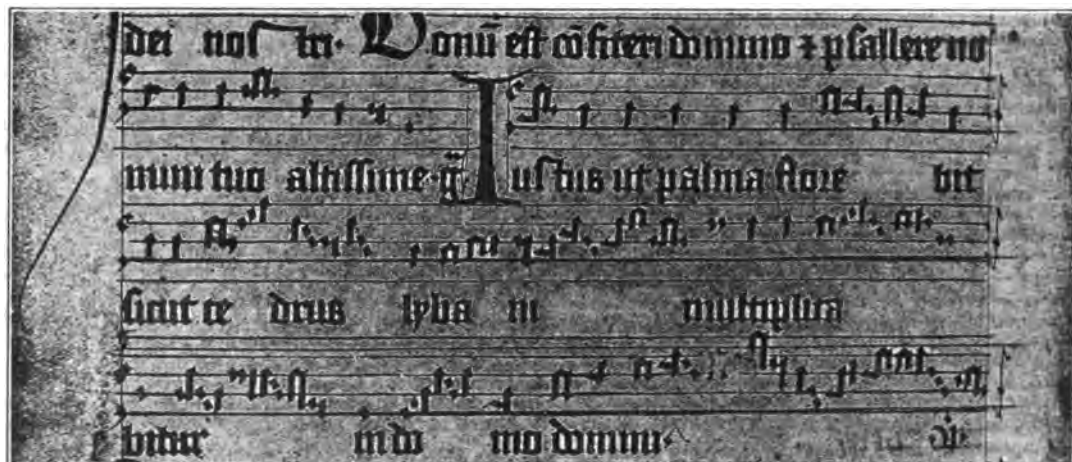 dei nos tri. Bonū est cōfiteri domino ⁊ psallere no
mini tuo altissime. Iustus ut palma flore bit
sicut ce drus lyba ni multiplica
bitur in do mo domini.